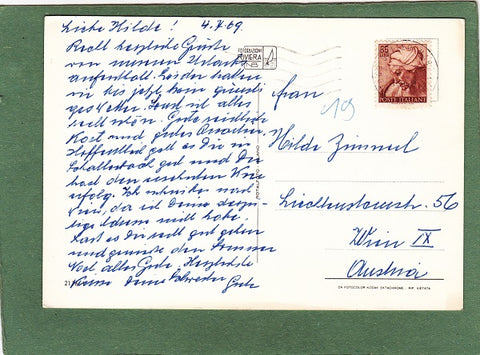 Liebe Hilde! 4.7.69.
Recht herzliche Grüße
von meinem Urlaubs-
aufenthalt. Leider hatten
wir bis jetzt kein günsti-
ges Wetter. Sonst ist alles
sehr schön. Gute reichliche
Kost und gutes Quartier.
Hoffentlich geht es Dir in
Schallerbach gut und Du
hast den erwünschten Kur-
erfolg. Ich schreibe nach
Wien, da ich Deine derzei-
tige
Lass es Dir recht gut gehen
und genieße den Sommer.
Viel alles Gute. Herzlichst
Deine Schwester
FOTOGRAFIE
RIVIERA
65
POSTE ITALIANE
19
Frau
Hilde Zimmel
Liechtensteinstr. 56
Wien IX
Austria
DA FOTOCOLOR KODAK EKTACHROME - RIP. VIETATA